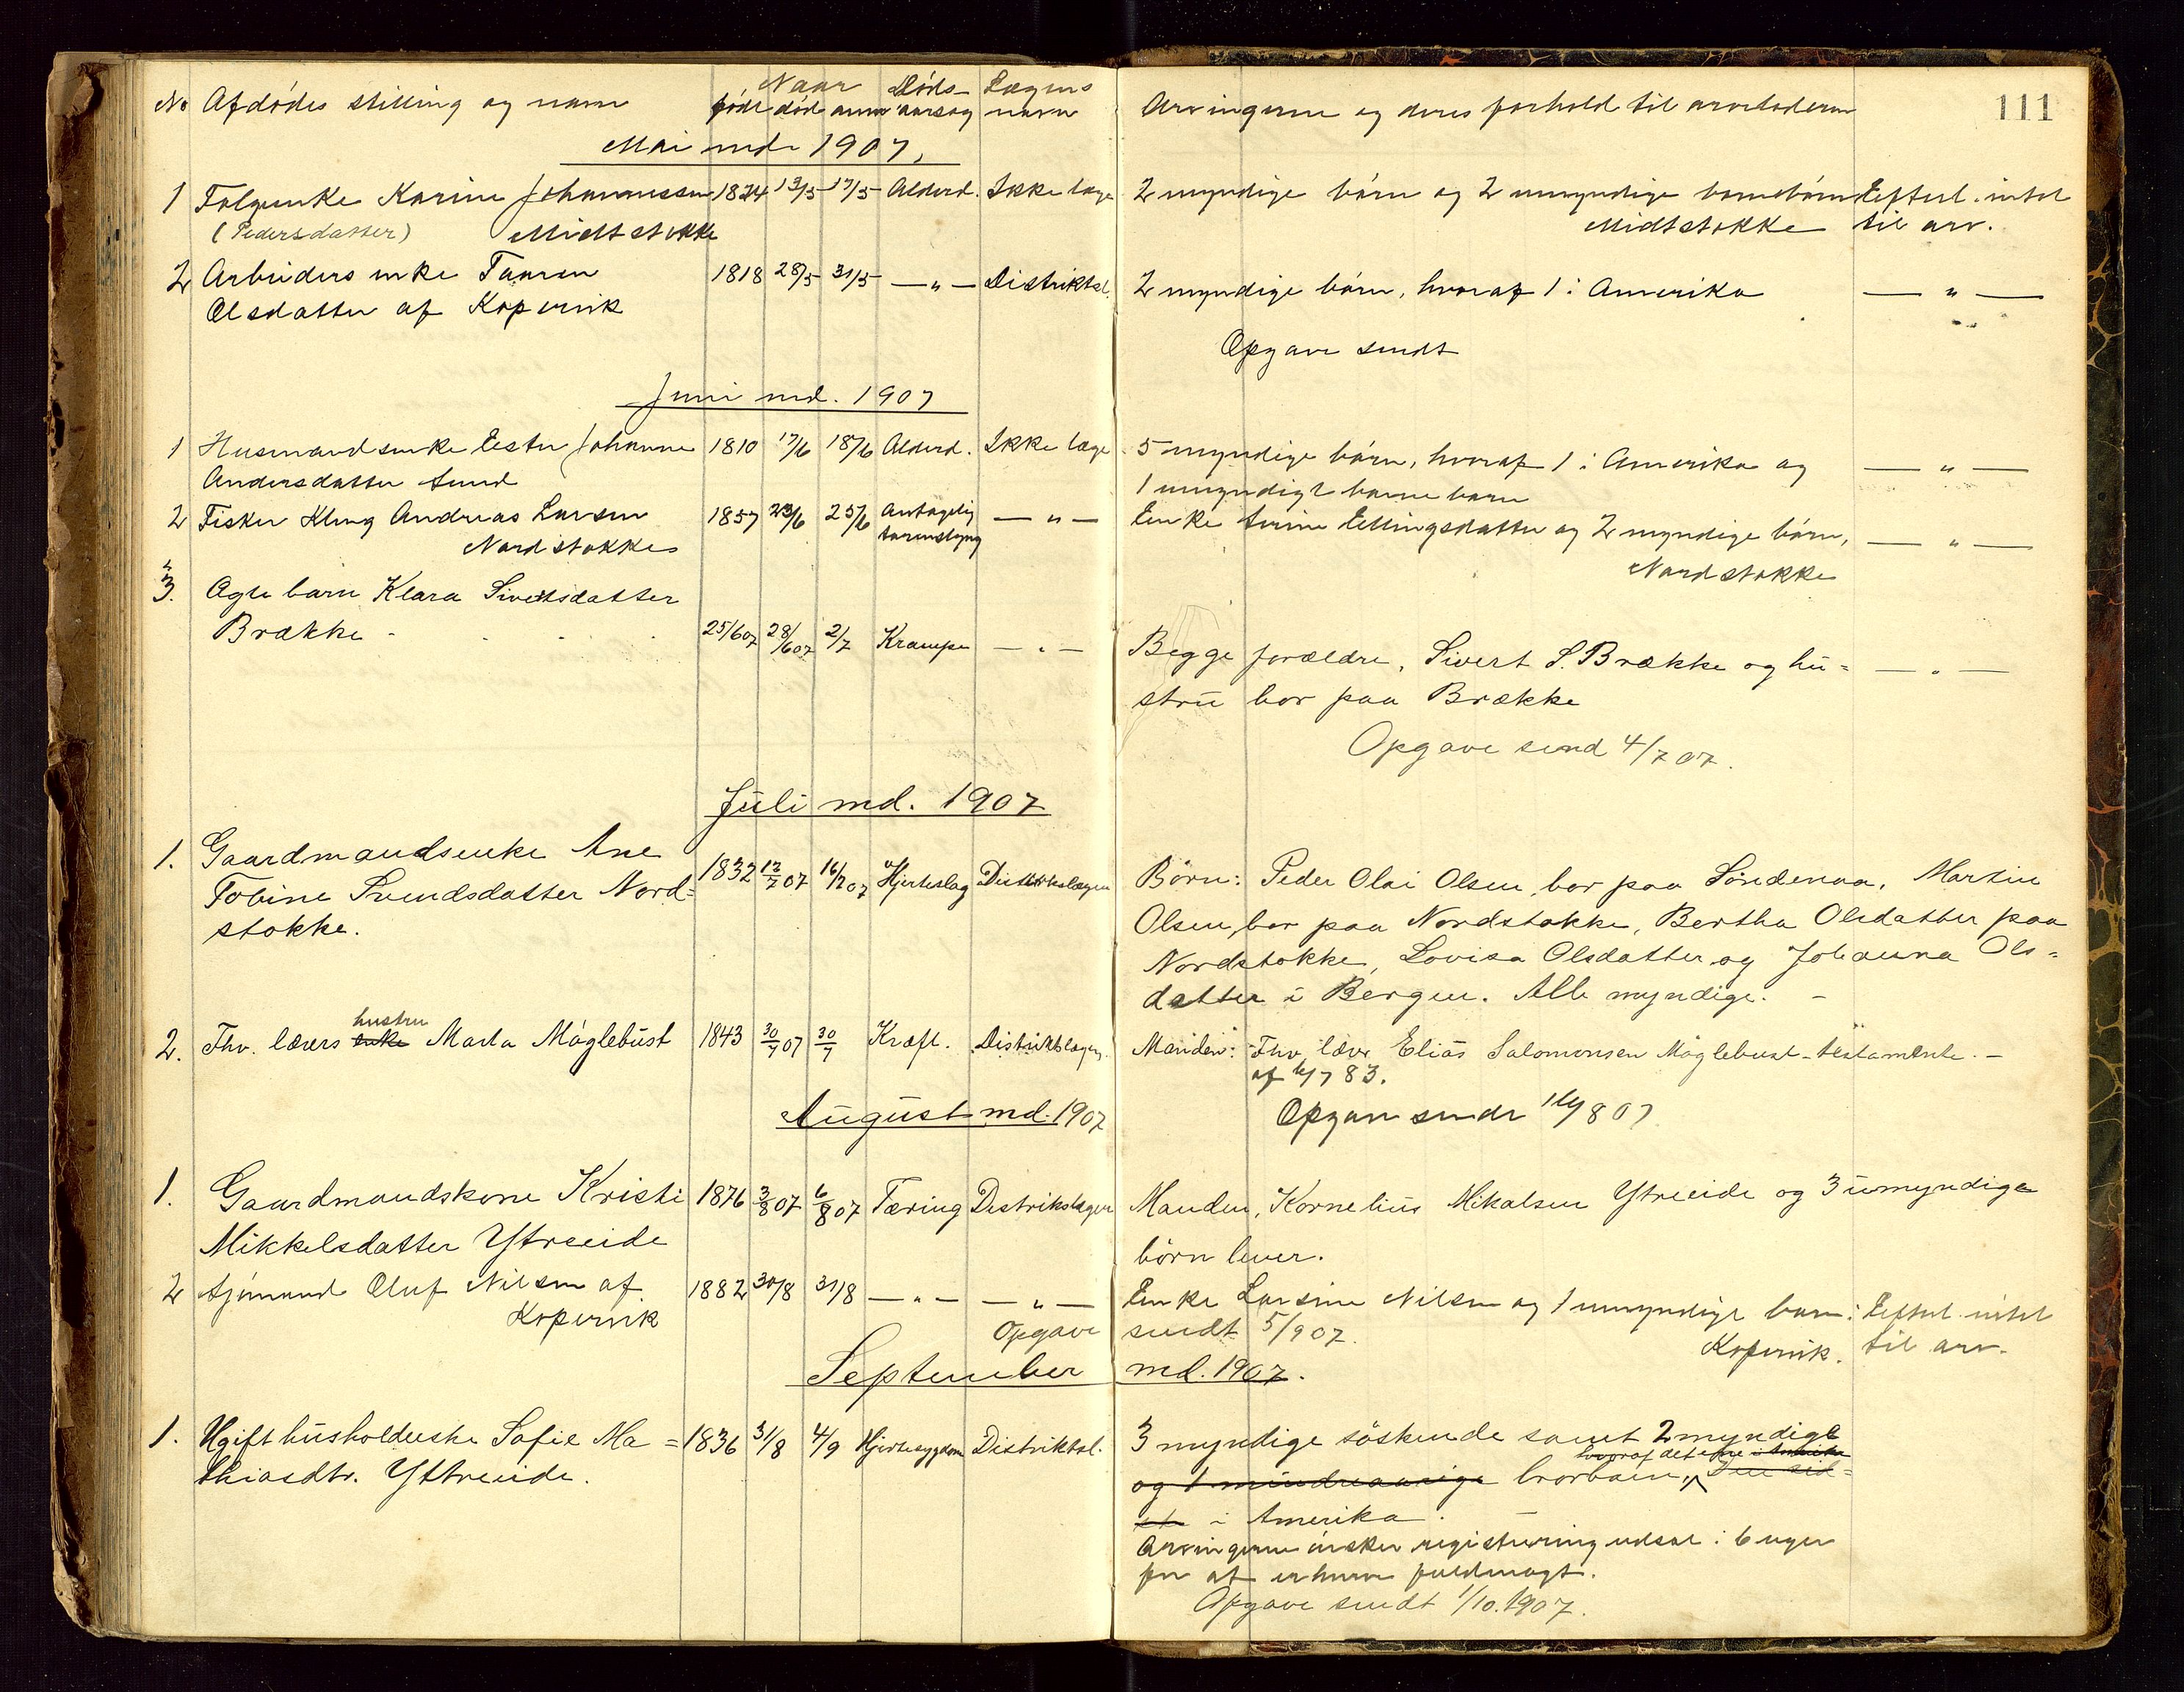 111
No Afdødes stilling og navn Naar født død anm Døds-aarsag Lægens navn Arvingerne og deres forhold til arveladeren
Mai md. 1907,
1 Folgeenke Karine Johannessen 1824 13/5 17/5 Alderd. Ikke læge 2 myndige børn og 2 umyndige barnebørn Efterl. intet
(Pedersdatter) Midtstokke Midtstokke til arv.
2 Arbeiders enke Taaran 1818 28/5 31/5 —„— Distriktsl. 2 myndige børn, hvoraf 1 i Amerika —„—
Olsdatter af Kopervik
Opgave sendt
Juni md. 1907
1 Husmandsenke Ester Johanne 1810 17/6 18/6 Alderd. Ikke læge 5 myndige børn, hvoraf 1 i Amerika og —„—
Andersdatter Sund 1 umyndigt barnebarn
2 Fisker Kling Andreas Larsen 1857 23/6 25/6 Antagelig —„— Enke Serine Ellingsdatter og 2 myndige børn, —„—
Nordstokke Nordstokke
3. Ægte barn Klara Sivertsdatter
Brække - 25/6 07 28/6 07 2/7 Krampe —„— Begge forældre, Sivert S. Brække og hu= —„—
stru bor paa Brække
Opgave send 4/7 07.
Juli md. 1907
1. Gaardmandsenke Ane 1832 12/7 07 16/7 07 Hjerteslag Distriktslægen Børn: Peder Olai Olsen, bor paa Søndenaa, Martin
Tobine Svendsdatter Nord= Olsen, bor paa Nordstokke, Bertha Olsdatter paa
stokke. Nordstokke, Lovisa Olsdatter og Johanna Ols=
datter i Bergen. Alle myndige. -
2. Fhv. lærers enke hustru Marta Møglebust 1843 30/7 07 30/7 Kræft. Distriktslægen. Manden: Fhv. lærer Elias Salomonsen Møglebust - testamente. -
af 6/7 83.
Opgave sendt 16/8 07
August md. 1907
1. Gaardmandskone Kristi 1876 3/8 07 6/8 07 Tæring Distrikslægen Manden, Kornelius Mikalsen Ytreeide og 3 umyndige
Mikkelsdatter Ytreeide børn lever.
2 Sjømand Oluf Nilsen af 1882 30/8 31/8 —„— —„— Enke Larsine Nilsen og 1 umyndigt barn: Efterl. intet
Kopervik Kopervik. til arv.
Opgave sendt 5/9 07.
September md. 1907.
1. Ugift husholderske Sofie Ma= 1836 31/8 4/9 Hjertesygdom Distriktsl. 3 myndige søskende samt 2 myndige
thiasdtr. Yttreeide. og 1 mindreaarige brorbarn, hvoraf det ene i Amerika
i Amerika.
Arvingerne ønsker registrering udsat i 6 uger
for at erhverve fuldmagt.
Opgave sendt 1/10. 1907.